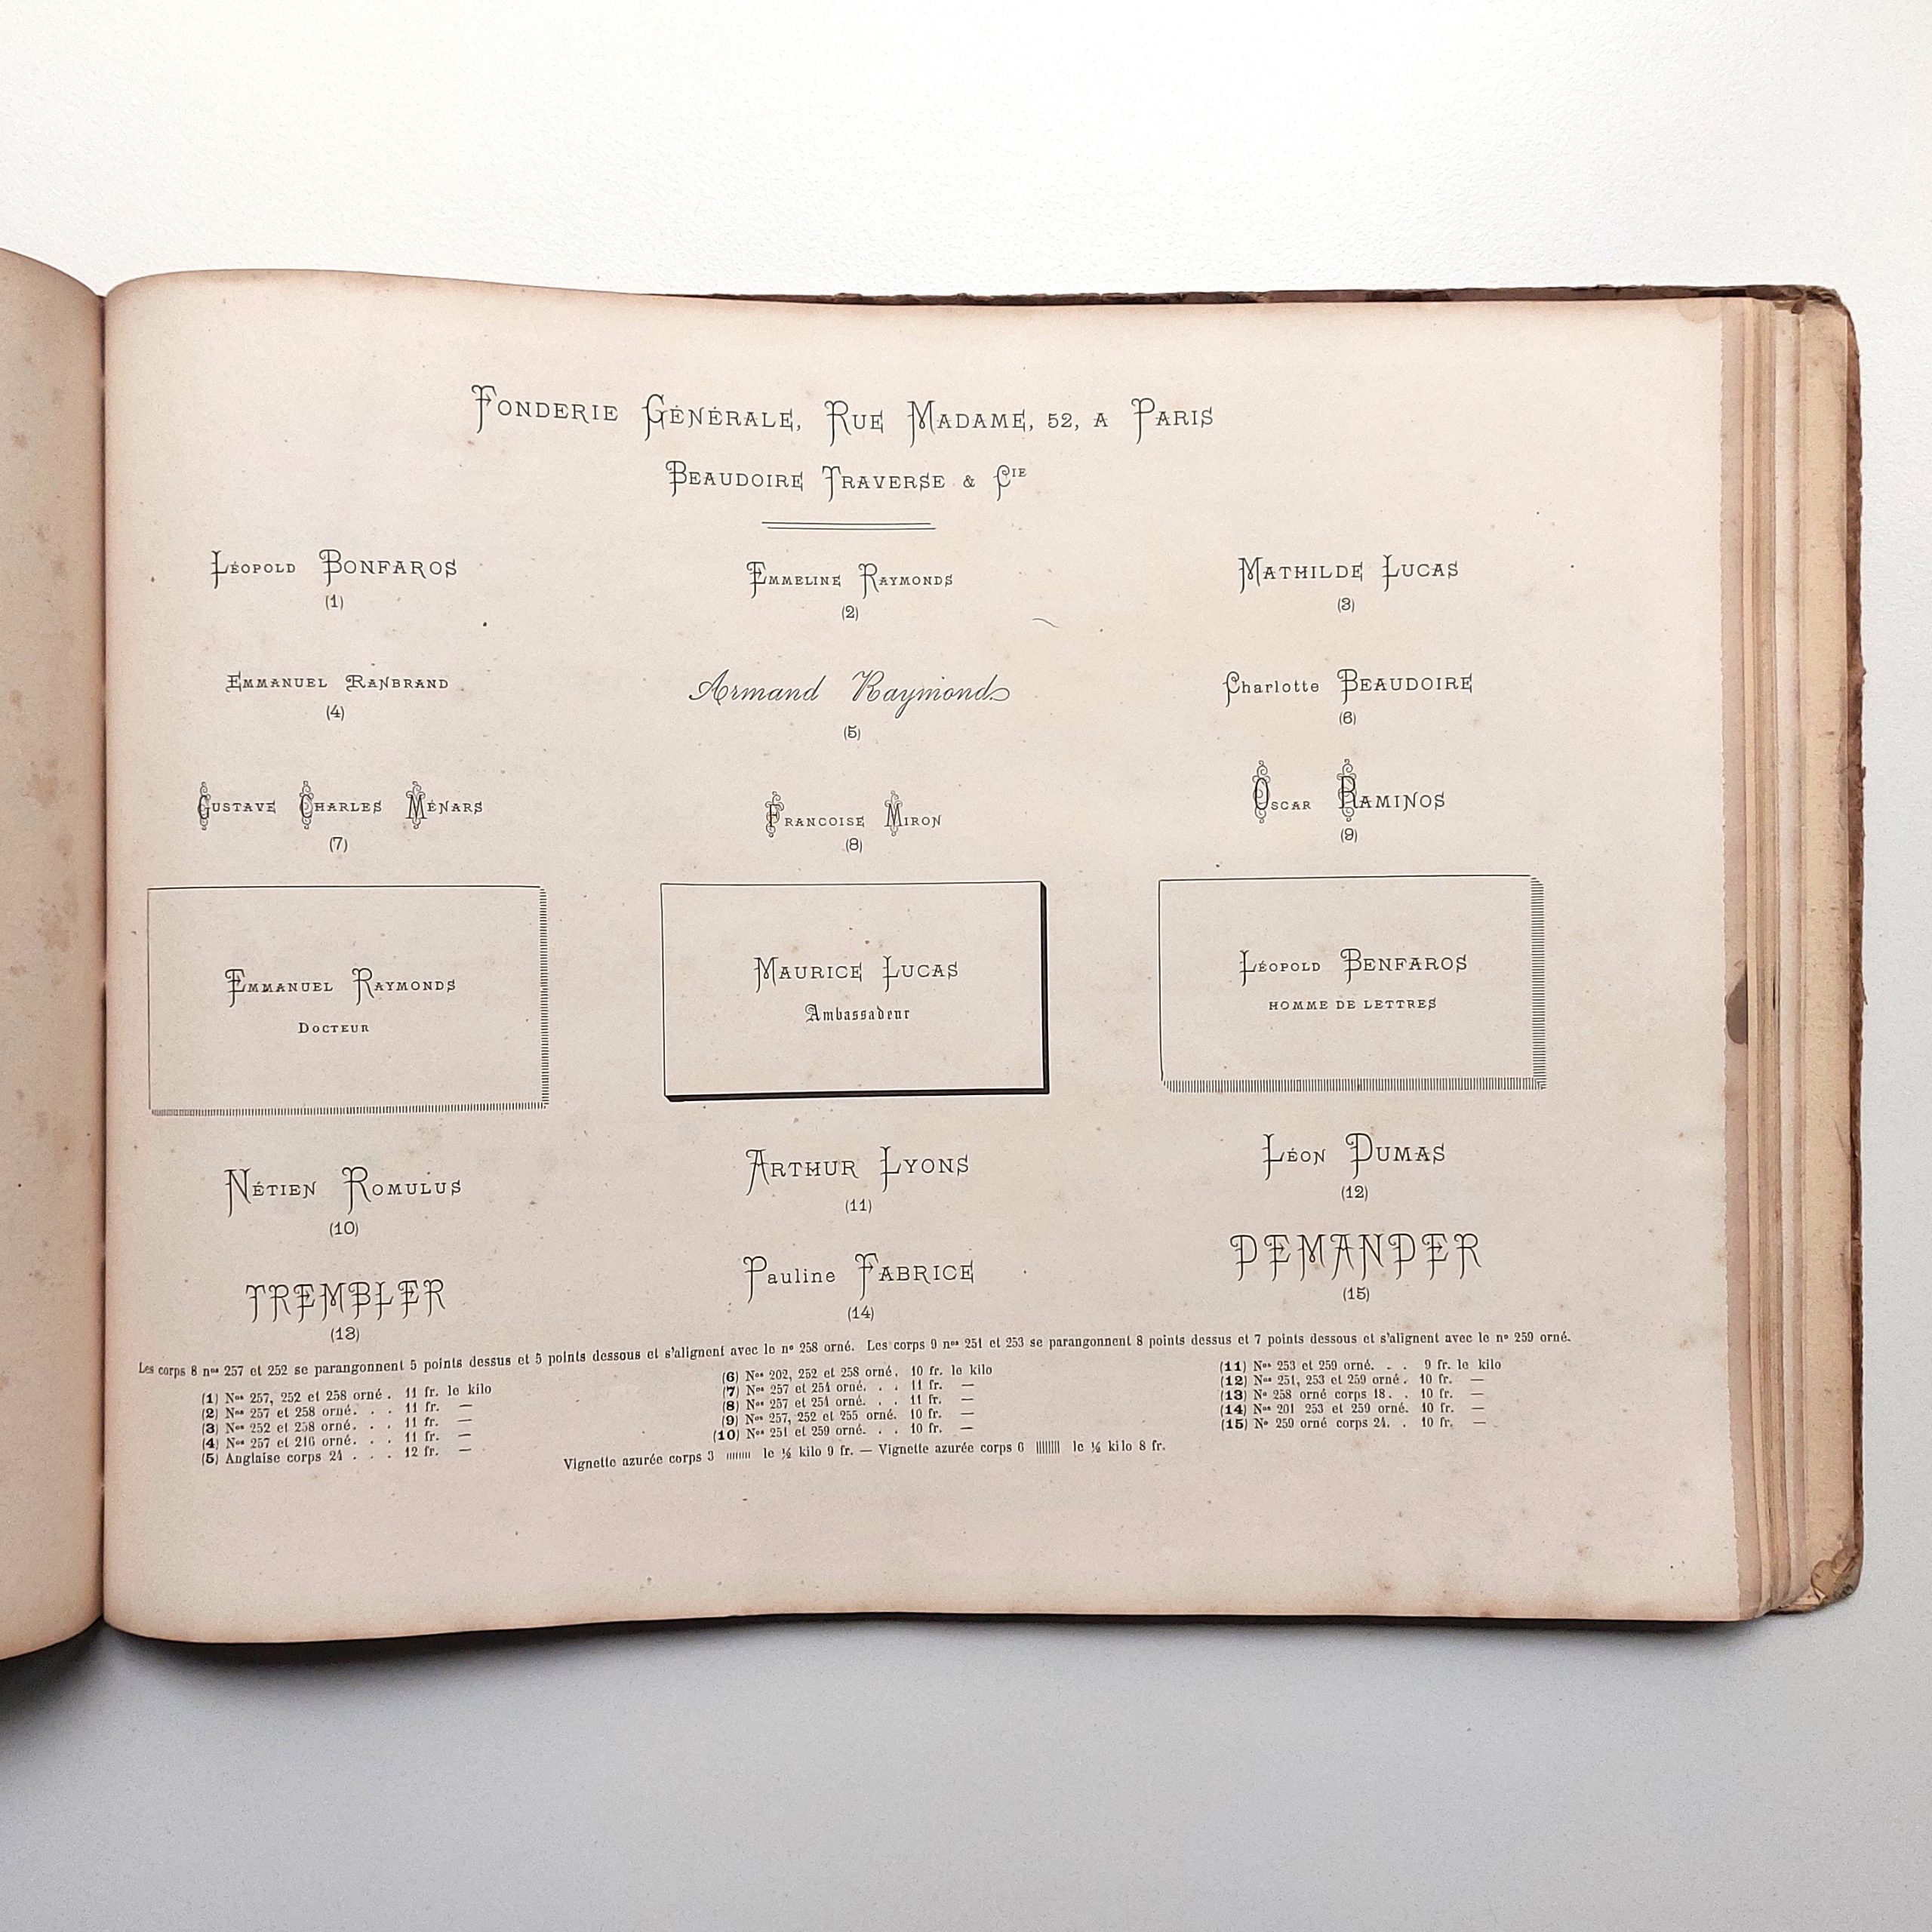 Fonderie Générale, Rue Madame, 52, a Paris
Beaudoire Traverse & Cie
Léopold BONFAROS
(1)
Emmeline Raymonds
(2)
MATHILDE LUCAS
(3)
Emmanuel Ranbrand
(4)
Armand Raymond
(5)
Charlotte BEAUDOIRE
(6)
Gustave Charles Ménars
(7)
Francoise Miron
(8)
Oscar RAMINOS
(9)
Emmanuel Raymonds
Docteur
MAURICE LUCAS
Ambassadeur
Léopold BENFAROS
HOMME DE LETTRES
Nétien Romulus
(10)
ARTHUR LYONS
(11)
Léon DUMAS
(12)
TREMBLER
(13)
Pauline FABRICE
(14)
DEMANDER
(15)
Les corps 8 nos 257 et 252 se parangonnent 5 points dessus et 5 points dessous et s'alignent avec le no 258 orné. Les corps 9 nos 251 et 253 se parangonnent 8 points dessus et 7 points dessous et s'alignent avec le no 259 orné.
(1) Nos 257, 252 et 258 orné . 11 fr. le kilo
(2) Nos 257 et 258 orné. . . 11 fr. —
(3) Nos 252 et 258 orné. . . 11 fr. —
(4) Nos 257 et 216 orné. . . 11 fr. —
(5) Anglaise corps 24 . . . 12 fr. —
(6) Nos 202, 252 et 258 orné. 10 fr. le kilo
(7) Nos 257 et 254 orné. . . 11 fr. —
(8) Nos 257 et 254 orné. . . 11 fr. —
(9) Nos 257, 252 et 255 orné. 10 fr. —
(10) Nos 251 et 259 orné. . . 10 fr. —
(11) Nos 253 et 259 orné. . . 9 fr. le kilo
(12) Nos 251, 253 et 259 orné. 10 fr. —
(13) No 258 orné corps 18. . 10 fr. —
(14) Nos 201 253 et 259 orné. 10 fr. —
(15) No 259 orné corps 24. . 10 fr. —
Vignette azurée corps 3 le ½ kilo 9 fr. — Vignette azurée corps 6 le ½ kilo 8 fr.